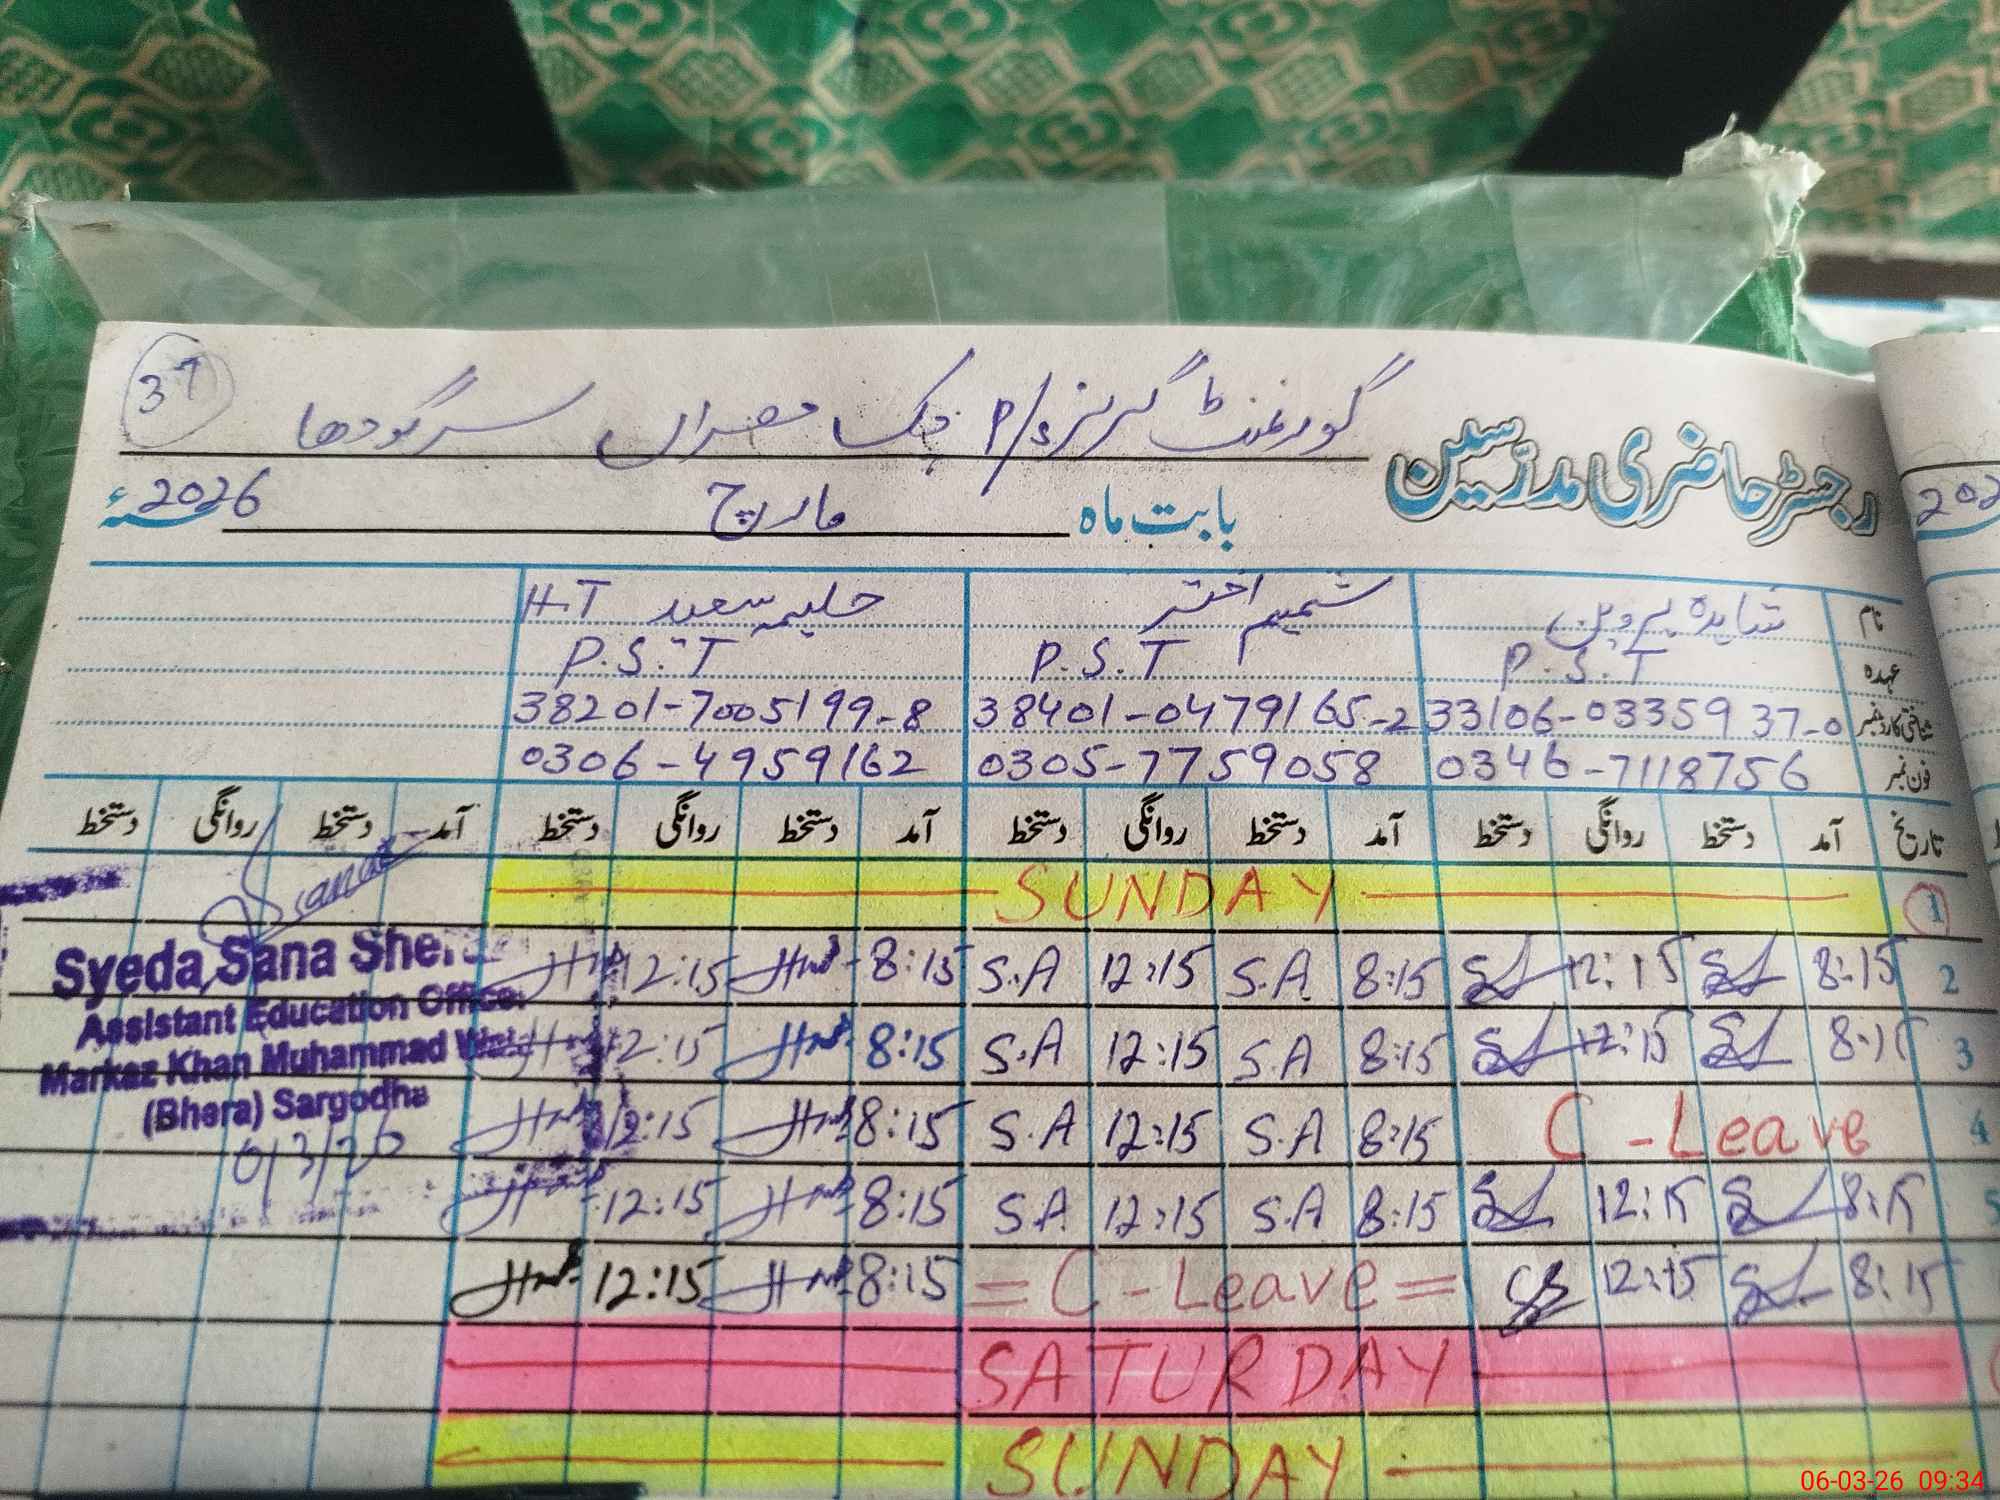 37
رجسٹر حاضری مدرسین گورنمنٹ گرلز P/S چک مصراں سرگودھا
بابت ماہ مارچ 2026ء
نام شاہدہ پروین شمیم اختر حلیمہ سعید H.T
عہدہ P.S.T P.S.T P.S.T
شناختی کارڈ نمبر 33106-0335937-0 38401-0479165-2 38201-7005199-8
فون نمبر 0346-7118756 0305-7759058 0306-4959162
تاریخ آمد دستخط روانگی دستخط آمد دستخط روانگی دستخط آمد دستخط روانگی دستخط آمد دستخط روانگی دستخط
1 SUNDAY
2 8:15 12:15 8:15 S.A 12:15 S.A 8:15 12:15
3 8:15 12:15 8:15 S.A 12:15 S.A 8:15 12:15
4 C-Leave 8:15 S.A 12:15 S.A 8:15 12:15
5 8:15 12:15 8:15 S.A 12:15 S.A 8:15 12:15
8:15 12:15 = C-Leave = 8:15 12:15
SATURDAY
SUNDAY
Sana
Syeda Sana
Assistant Education Officer
Markaz Khan Muhammad Wala
(Bhera) Sargodha
6/3/26
202
06-03-26 09:34